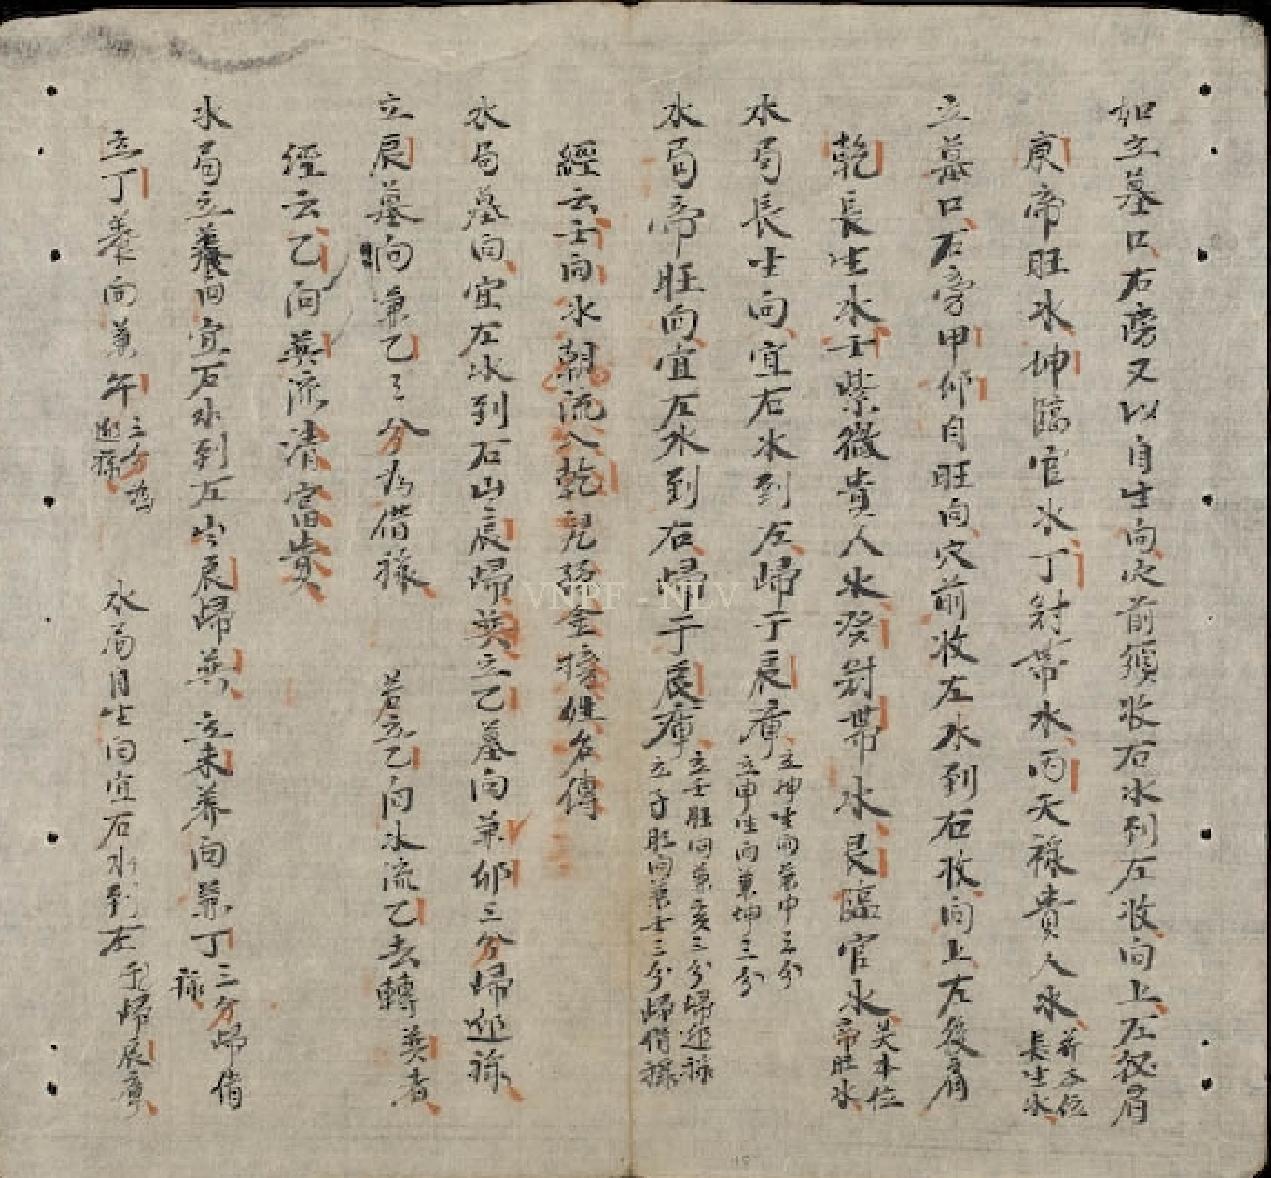 如立墓口右旁又以自生向穴前須收右水到左收向上左後肩
庚帝旺水坤臨官水丁對帶水丙天祿貴人水
并本位
長生水
立墓口左旁甲卯自旺向穴前收左水到右收向上左後肩
乾長生水壬紫微貴人水癸對帶水艮臨官水
关本位
帝旺水
水局長生向宜右水到左歸于辰庫
立坤生向兼申三分
立申生向兼坤三分
水局帝旺向宜左水到右歸于辰庫
立壬旺向兼亥三分歸迎祿
立子旺向兼壬三分歸借祿
經云壬向水朝流入乾兒孫金榜姓名傳
水局墓向宜左水到右山辰歸巽立乙墓向兼卯三分歸迎祿
立辰墓向兼乙三分为借祿 若立乙向水流乙去轉巽者
經云乙向巽流清富貴
水局立養向宜右水到左山辰歸巽 立未养向兼丁
三分歸借
祿
立丁養向兼午
三分
迎祿
水局自生向宜右水到左
歸辰庫
VNPF - NLV